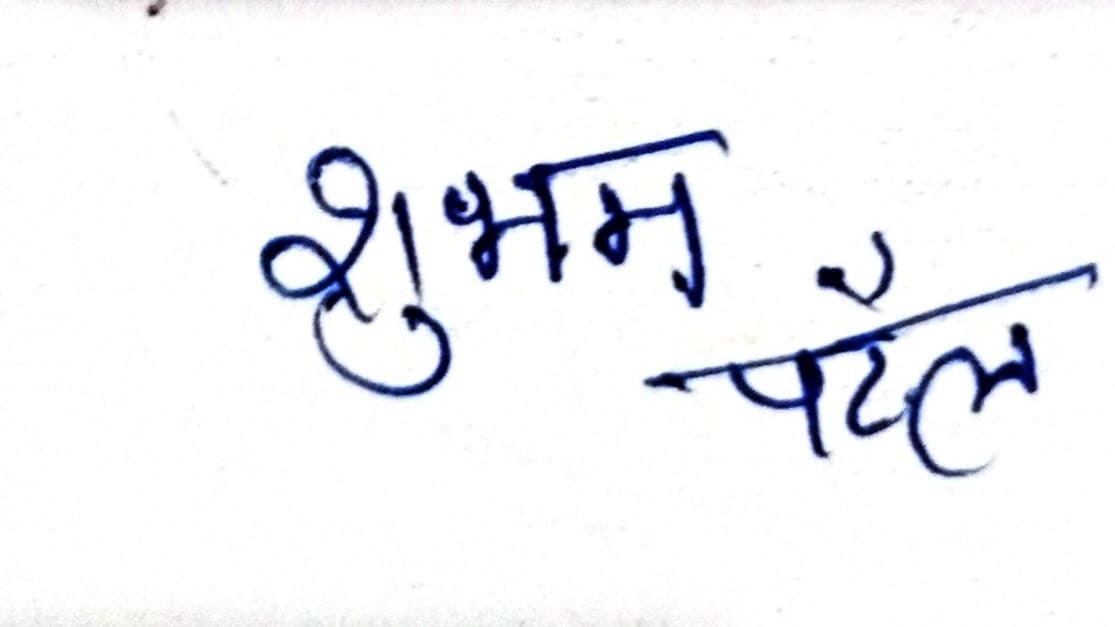 शुभम
पटेल